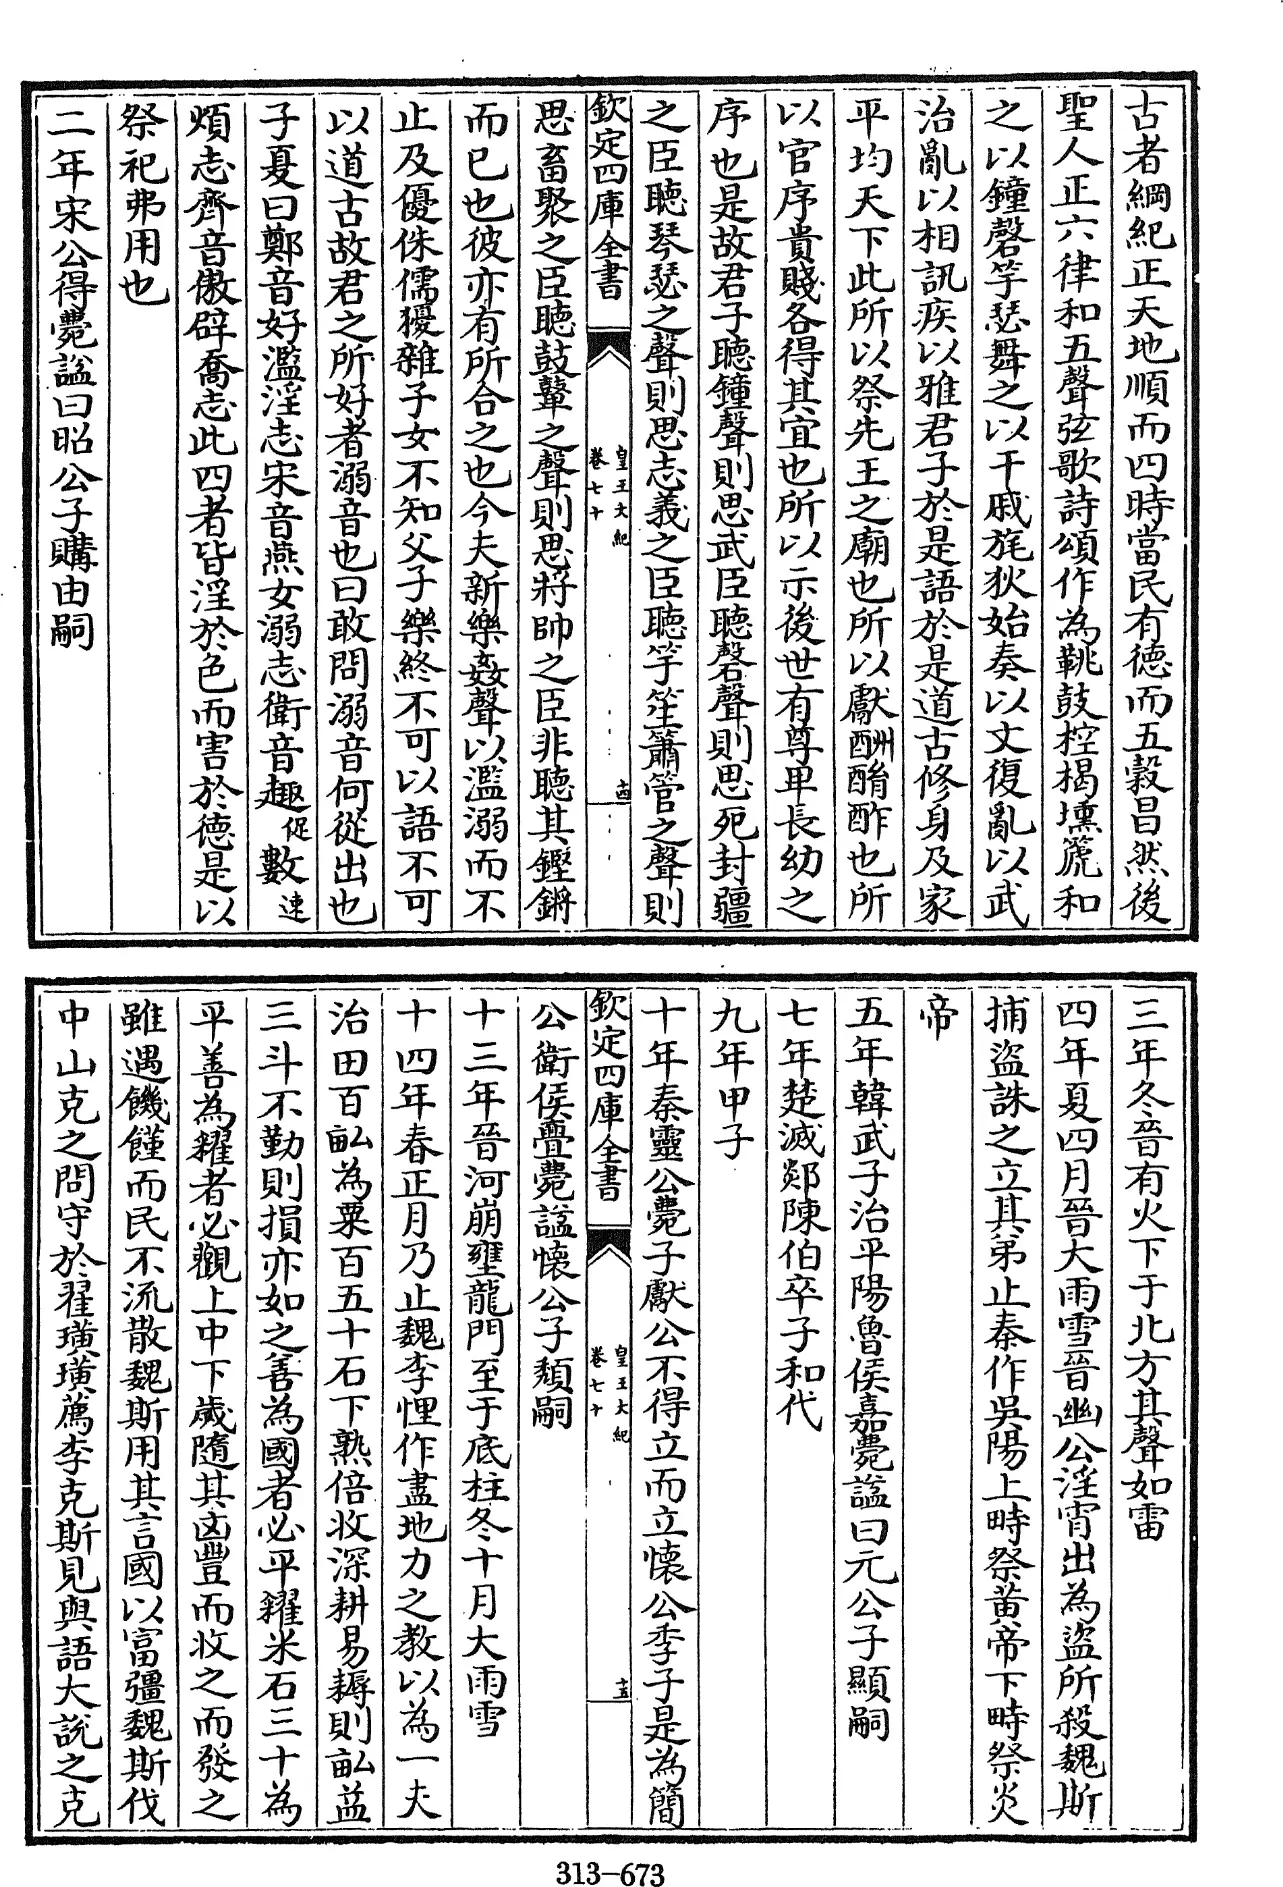 古者綱紀正天地順而四時當民有德而五穀昌然後
聖人正六律和五聲弦歌詩頌作為鞉鼓椌楬壎箎和
之以鐘磬竽瑟舞之以干戚旄狄始奏以文復亂以武
治亂以相訊疾以雅君子於是語於是道古修身及家
平均天下此所以祭先王之廟也所以獻酬酳酢也所
以官序貴賤各得其宜也所以示後世有尊卑長幼之
序也是故君子聽鐘聲則思武臣聽磬聲則思死封疆
之臣聽琴瑟之聲則思志義之臣聽竽笙簫管之聲則
欽定四庫全書
皇王大紀
卷七十
十四
思畜聚之臣聽鼓鼙之聲則思將帥之臣非聽其鏗鏘
而已也彼亦有所合之也今夫新樂姦聲以濫溺而不
止及優侏儒獶雜子女不知父子樂終不可以語不可
以道古故君之所好者溺音也曰敢問溺音何從出也
子夏曰鄭音好濫淫志宋音燕女溺志衛音趣促數速
煩志齊音傲辟喬志此四者皆淫於色而害於德是以
祭祀弗用也
二年宋公得薨諡曰昭公子購由嗣
三年冬晉有火下于北方其聲如雷
四年夏四月晉大雨雪晉幽公淫宵出為盜所殺魏斯
捕盜誅之立其弟止秦作吳陽上畤祭黃帝下畤祭炎
帝
五年韓武子治平陽魯侯嘉薨諡曰元公子顯嗣
七年楚滅郯陳伯卒子和代
九年甲子
十年秦靈公薨子獻公不得立而立懷公季子是為簡
欽定四庫全書
皇王大紀
卷七十
十五
公衛侯亹薨諡懷公子頹嗣
十三年晉河崩壅龍門至于底柱冬十月大雨雪
十四年春正月乃止魏李悝作盡地力之教以為一夫
治田百畝為粟百五十石下熟倍收深耕易耨則畝益
三斗不勤則損亦如之善為國者必平糴米石三十為
平善為糴者必觀上中下歲隨其凶豐而收之而發之
雖遇饑饉而民不流散魏斯用其言國以富彊魏斯伐
中山克之問守於翟璜璜薦李克斯見與語大說之克
313-673